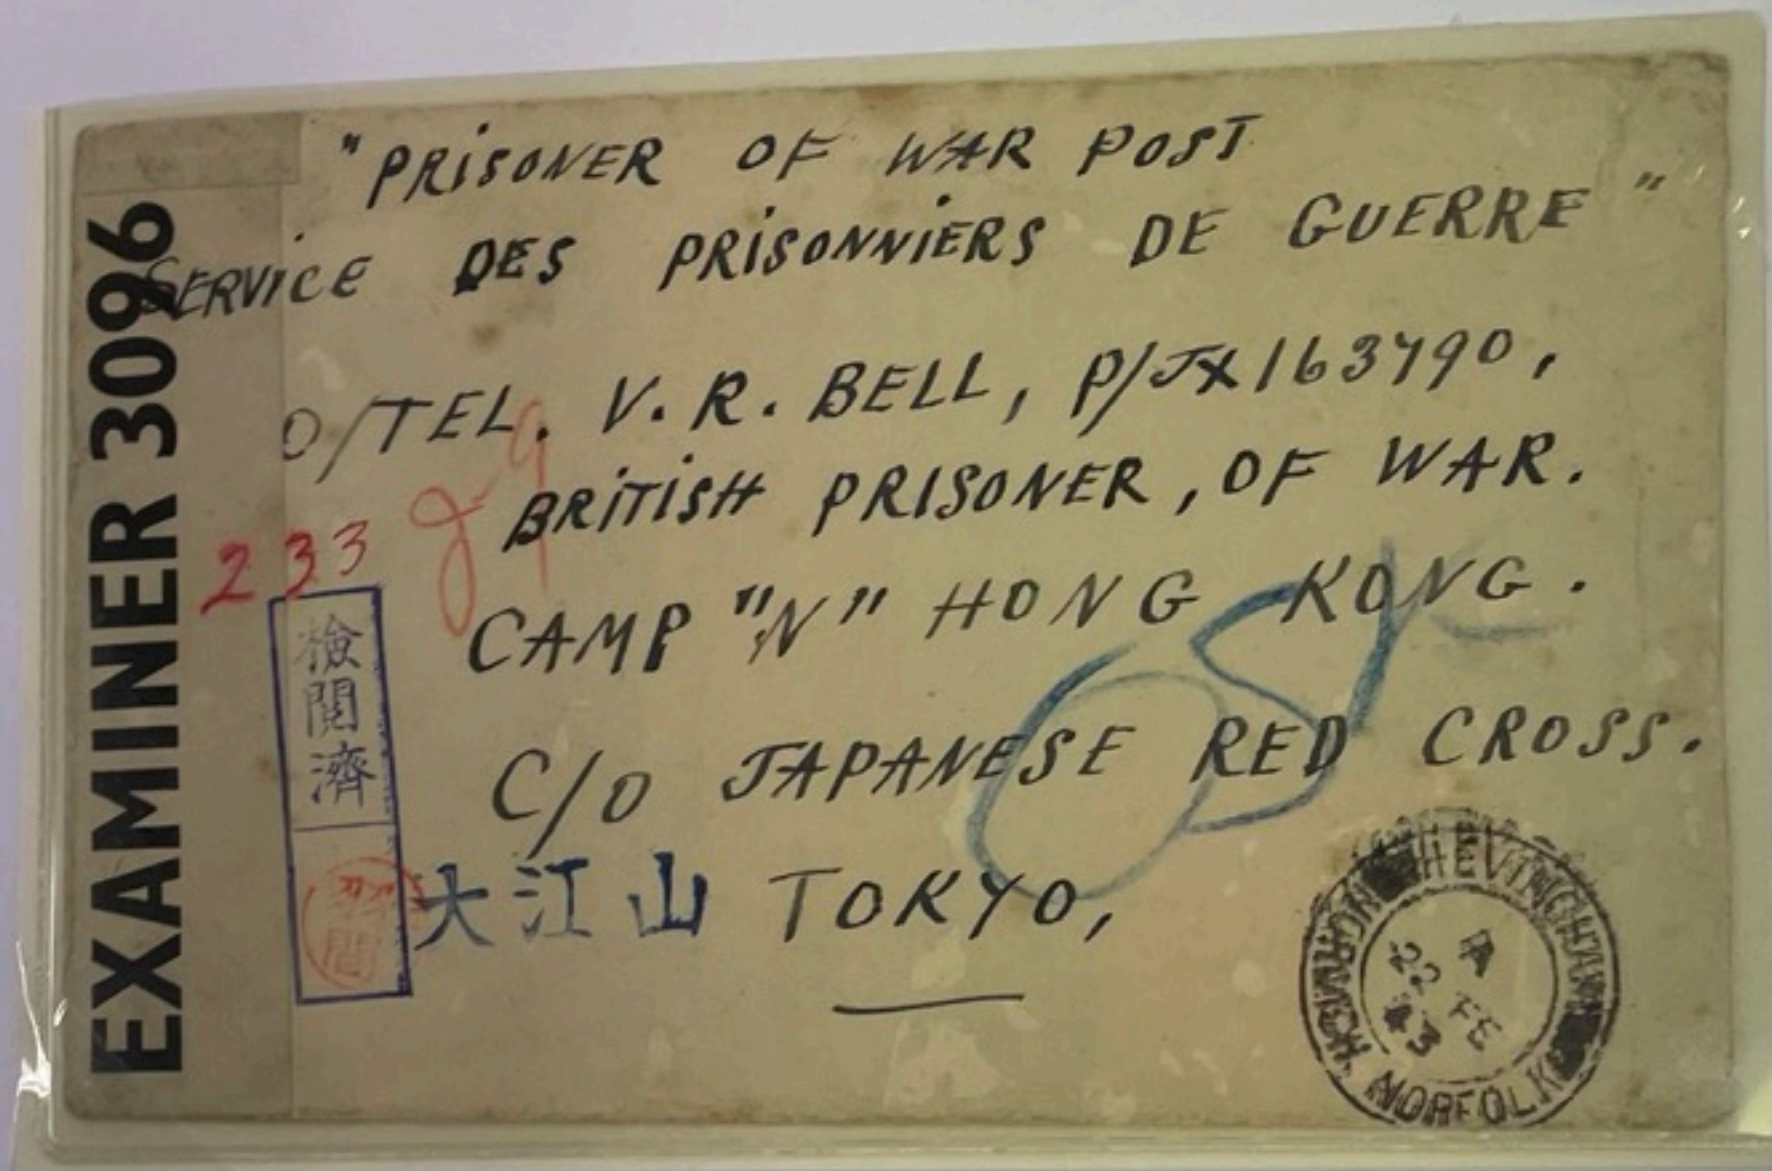 EXAMINER 3096
"PRISONER OF WAR POST
SERVICE DES PRISONNIERS DE GUERRE"
O/TEL. V. R. BELL, P/JX163790,
BRITISH PRISONER, OF WAR.
233
CAMP "N" HONG KONG.
C/O JAPANESE RED CROSS.
大江山 TOKYO,
檢閲濟
HEVINGHAM
NORWICH, NORFOLK
22 FE
43